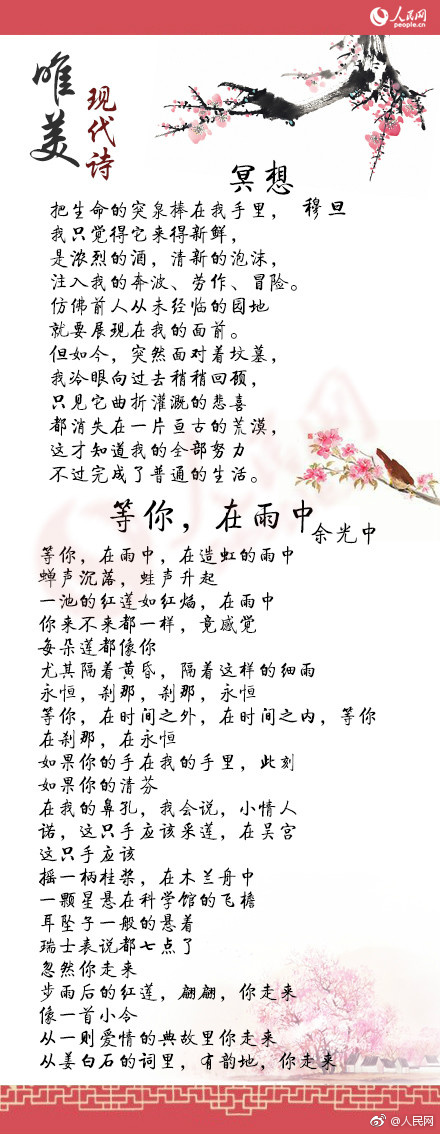 人民网
people.cn
唯美
现代诗
冥想
穆旦
把生命的突泉捧在我手里，
我只觉得它来得新鲜，
是浓烈的酒，清新的泡沫，
注入我的奔波、劳作、冒险。
仿佛前人从未经临的园地
就要展现在我的面前。
但如今，突然面对着坟墓，
我冷眼向过去稍稍回顾，
只见它曲折灌溉的悲喜
都消失在一片亘古的荒漠，
这才知道我的全部努力
不过完成了普通的生活。
等你，在雨中
余光中
等你，在雨中，在造虹的雨中
蝉声沉落，蛙声升起
一池的红莲如红焰，在雨中
你来不来都一样，竟感觉
每朵莲都像你
尤其隔着黄昏，隔着这样的细雨
永恒，刹那，刹那，永恒
等你，在时间之外，在时间之内，等你
在刹那，在永恒
如果你的手在我的手里，此刻
如果你的清芬
在我的鼻孔，我会说，小情人
诺，这只手应该采莲，在吴宫
这只手应该
摇一柄桂桨，在木兰舟中
一颗星悬在科学馆的飞檐
耳坠子一般的悬着
瑞士表说都七点了
忽然你走来
步雨后的红莲，翩翩，你走来
像一首小令
从一则爱情的典故里你走来
从姜白石的词里，有韵地，你走来
@人民网